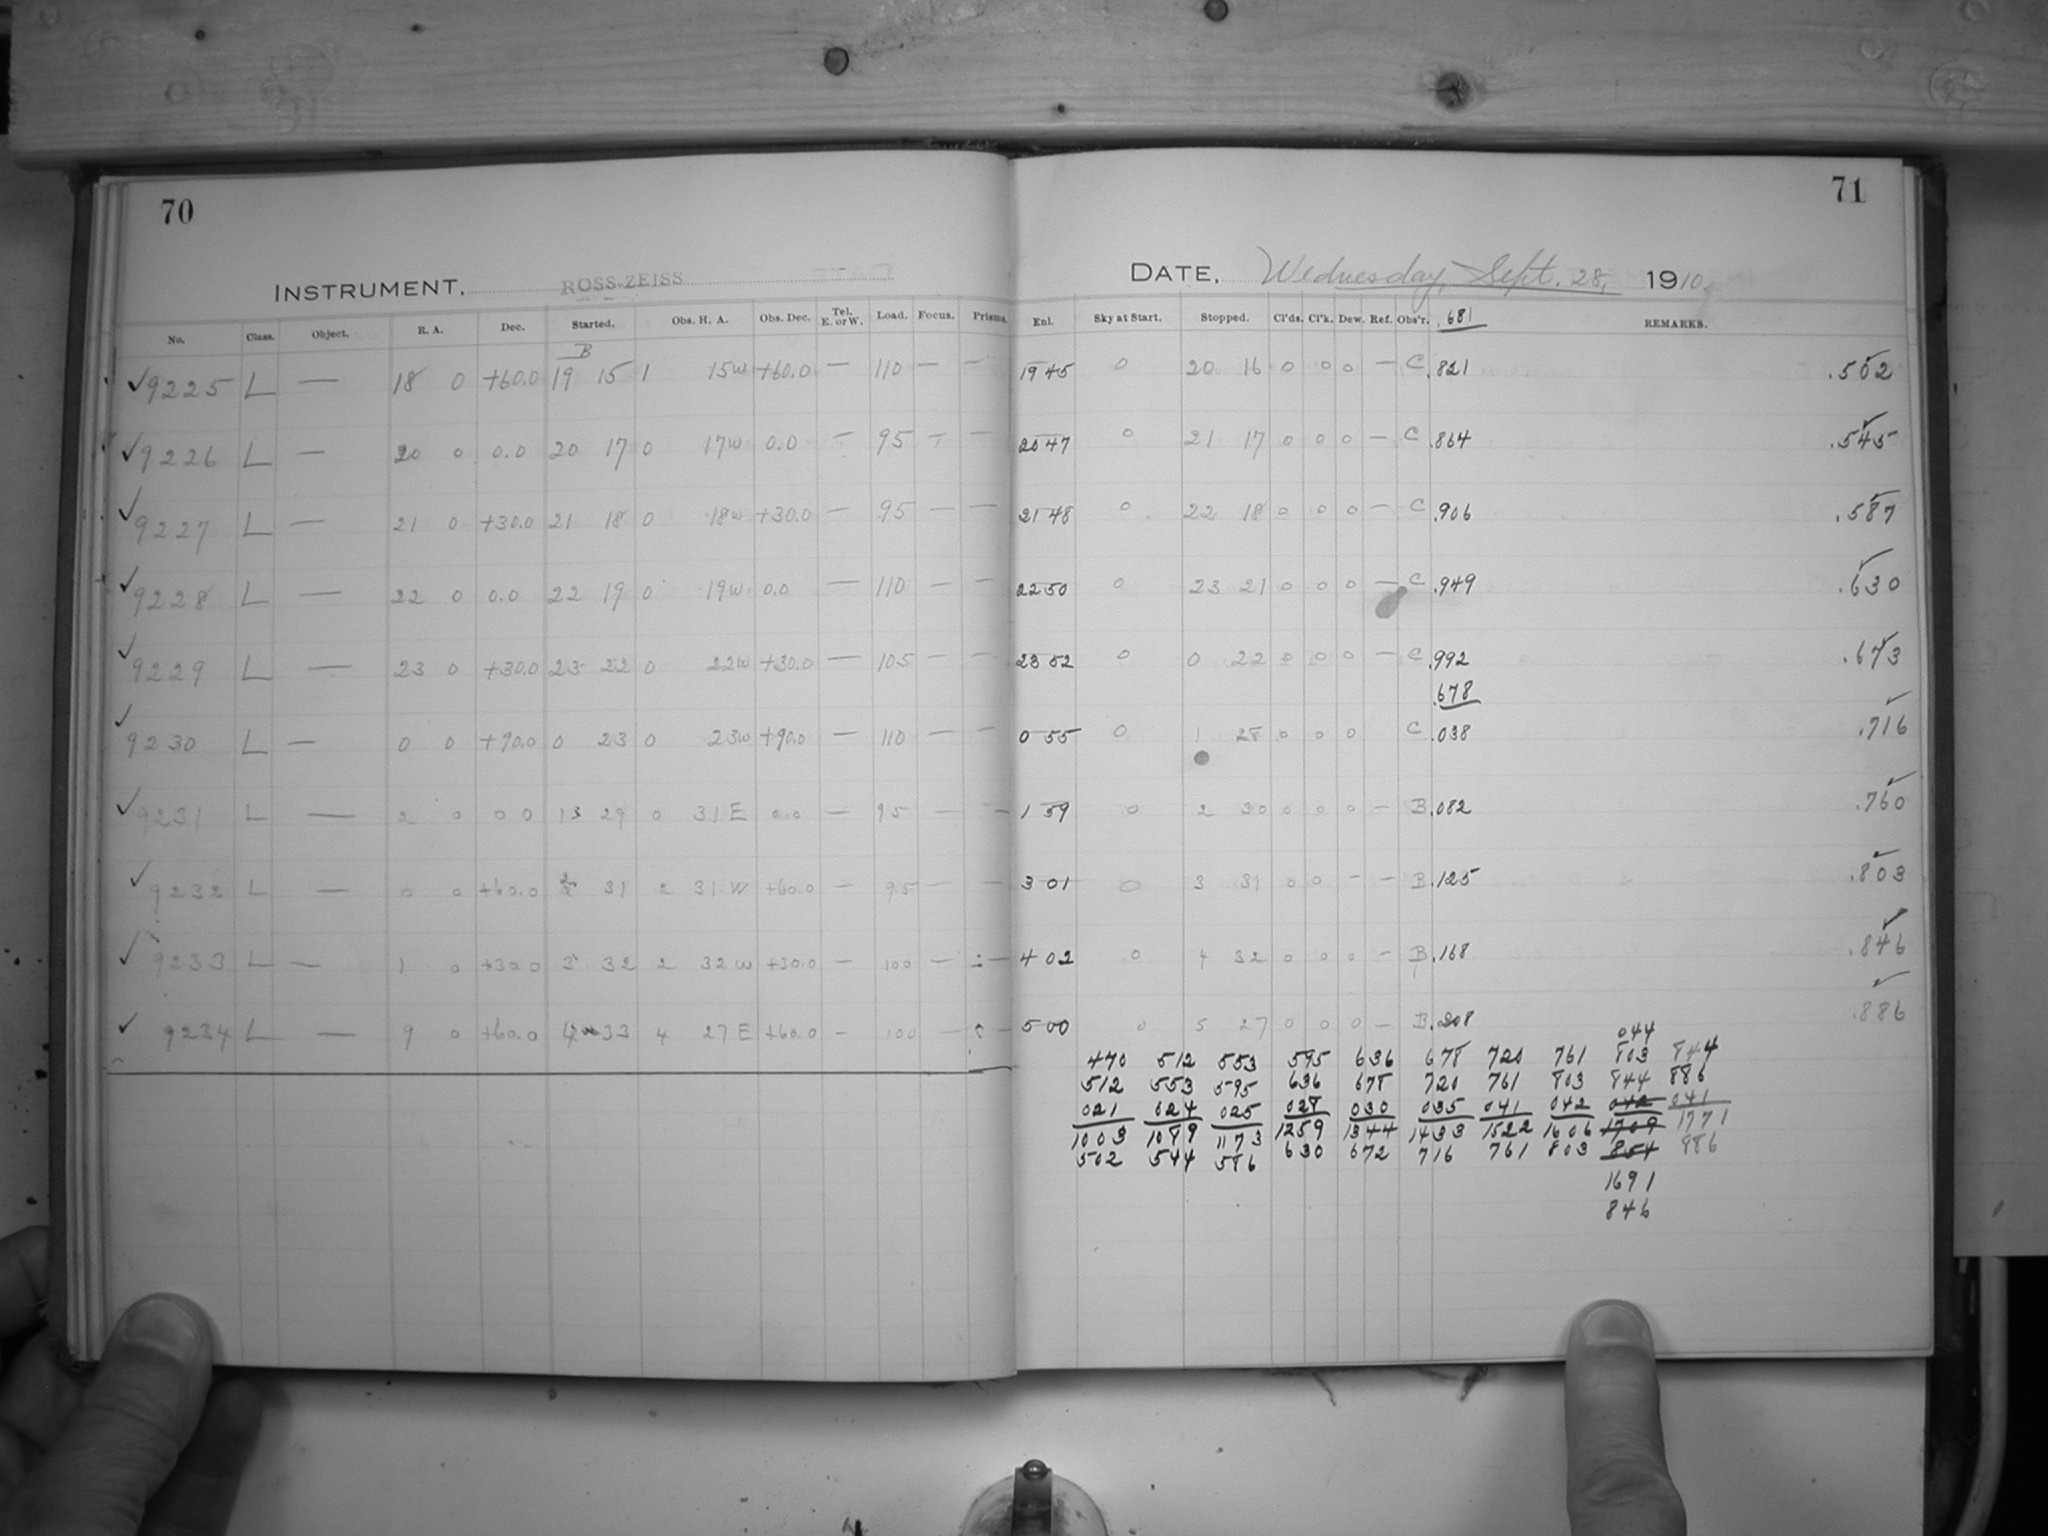 70
INSTRUMENT. ROSS-ZEISS
No. Class. Object. R. A. Dec. Started. Obs. H. A. Obs. Dec. Tel. E. or W. Load. Focus. Prisms.
B
✓ 9225 L — 18 0 +60.0 19 15 1 15W +60.0 — 110 — —
✓ 9226 L — 20 0 0.0 20 17 0 17W 0.0 — 95 — —
✓ 9227 L — 21 0 +30.0 21 18 0 18W +30.0 — 95 — —
✓ 9228 L — 22 0 0.0 22 19 0 19W 0.0 — 110 — —
✓ 9229 L — 23 0 +30.0 23 22 0 22W +30.0 — 105 — —
✓ 9230 L — 0 0 +90.0 0 23 0 23W +90.0 — 110 — —
✓ 9231 L — 2 0 0 0 1 29 0 31 E 0.0 — 95 — —
✓ 9232 L — 0 0 +60.0 2 31 2 31 W +60.0 — 95 — —
✓ 9233 L — 1 0 +30.0 3 32 2 32 W +30.0 — 100 — —
✓ 9234 L — 9 0 +60.0 4 33 4 27 E +60.0 — 100 —
71
DATE. Wednesday, Sept. 28, 1910.
Enl. Sky at Start. Stopped. Cl'ds. Cl'k. Dew. Ref. Obs'r. .681 REMARKS.
19 45 0 20 16 0 0 0 — C .821 .502 ✓
20 47 0 21 17 0 0 0 — C .864 .545 ✓
21 48 0 22 18 0 0 0 — C .906 .587 ✓
22 50 0 23 21 0 0 0 — C .949 .630 ✓
23 52 0 0 22 0 0 0 — C .992 .673 ✓
.678
0 55 0 1 28 0 0 0 C .038 .716 ✓
1 59 0 2 30 0 0 0 — B .082 .760 ✓
3 01 0 3 31 0 0 — — B .125 .803 ✓
4 02 0 4 32 0 0 0 — B .168 .846 ✓
5 00 0 5 27 0 0 0 — B .208 .886 ✓
044
470 512 553 595 636 678 720 761 803 844
512 553 595 636 678 720 761 803 844 886
021 024 025 028 030 035 041 042 042 041
1003 1089 1173 1259 1344 1433 1522 1606 1709 1771
502 544 586 630 672 716 761 803 854 886
1691
846